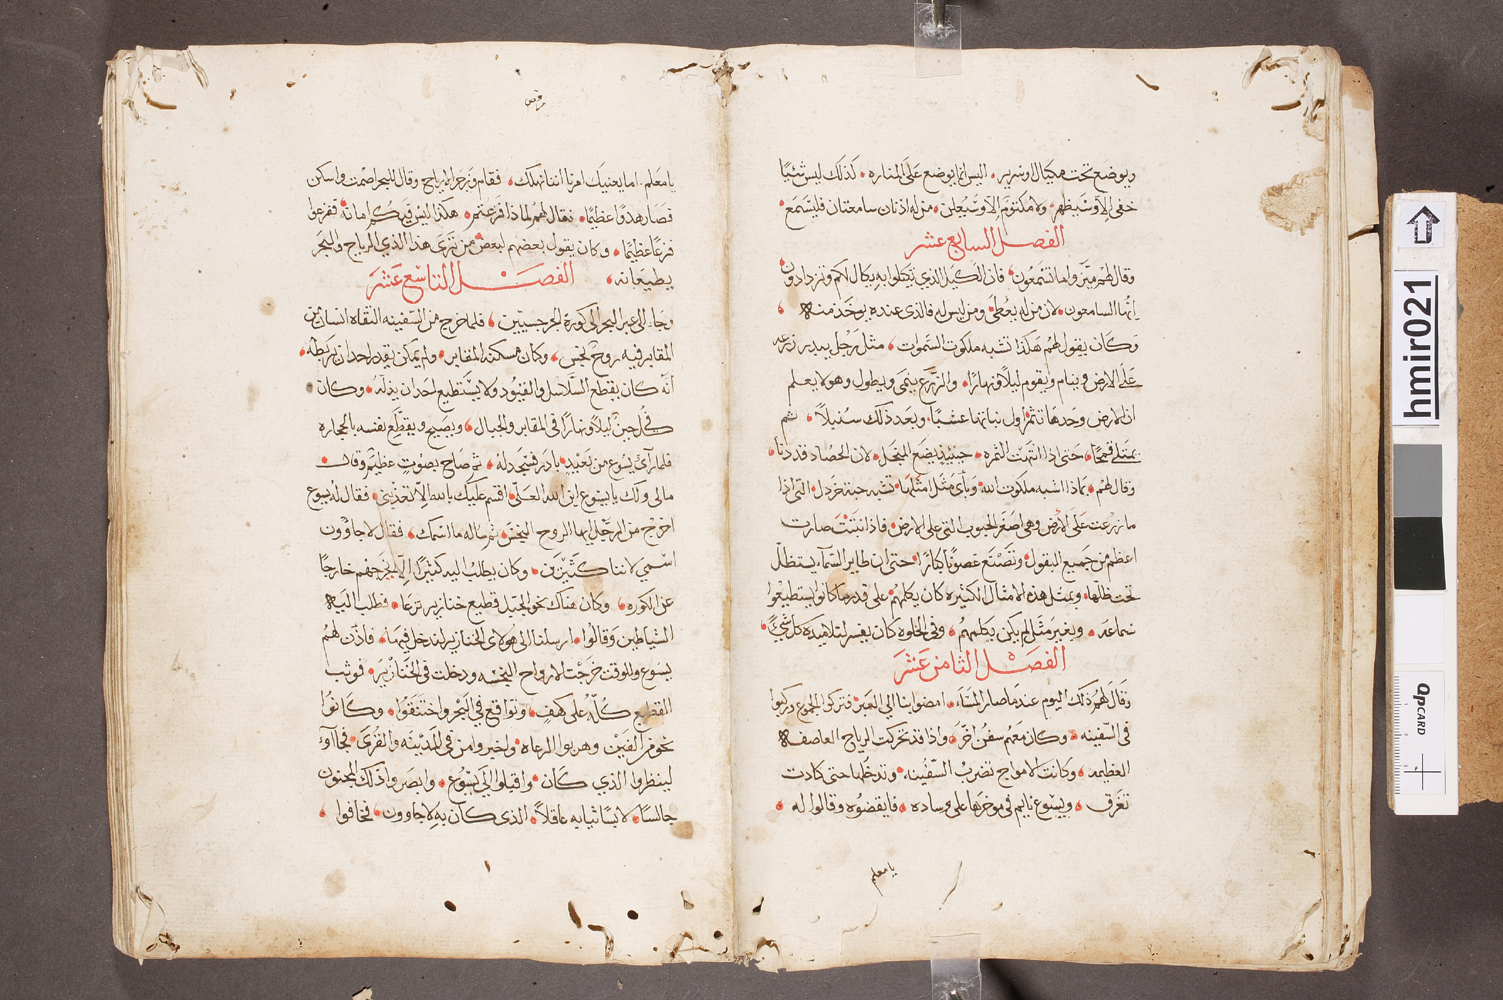 ويوضع تحت مكيال او سرير. اليس انما يوضع على المناره. كذلك ليس شيئًا
خفي الا وسيظهر. ولا مكتوم الا وسيعلن. من له اذنان سامعتان فليسمع.
الفصل السابع عشر
وقال لهم ميّز واما تسمعون. فان الكيل الذي تكيلوا به يكال لكم وتزدادون
ايّها السامعون. لان من له يعطى. ومن ليس له فالذي عنده يوخذ منه.
وكان يقول لهم هكذا تشبه ملكوت السموات. مثل رجل يبدر زرعه
على الارض وينام ويقوم ليلًا ونهارًا. والزرع ينمى ويطول وهو لا يعلم
ان الارض وحدها تثمر. اول نباتها عشبًا. وبعد ذلك سنبلًا. ثم
يمتلي قمحًا. حتى اذا انتهت الثمره. حينيذ يضع المنجل. لان الحصاد قد دنا.
وقال لهم. بماذا اشبه ملكوت الله. وبأي مثل امثلها. تشبه حبة خردل. التي اذا
ما زرعت على الارض وهي اصغر الحبوب التي على الارض. فاذا نبتت صارت
اعظم من جميع البقول. وتصنع غصونًا كبارًا. حتى ان طاير السمآء يستظل
تحت ظلها. وبمثل هذه الامثال الكثيره كان يكلمهم. على قدر ما كانوا يستطيعوا
سماعه. وبغير مثل لم يكن يكلمهم. وفي الخلوه كان يفسر لتلاميده كل شيءٍ.
الفصل الثامن عشر
وقال لهم ذلك اليوم عند ما صار المساء. امضوا بنا الي العبر. فتركوا الجموع وركبوا
في السفينه. وكان معهم سفن اخر. واذا قد تحركت الرياح العاصفه
العظيمه. وكانت الامواج تضرب السفينه. وتدخلها حتى كادت
تغرق. ويسوع نايم في موخرها على وساده. فايقضوه وقالوا له.
يا معلم
مرقس
يا معلم. اما يعنيك امرنا اننا نهلك. فقام وزجر الرياح وقال للبحر اصمت واسكن
فصار هدوًا عظيمًا. فقال لهم لماذا فزعتم. هكذا اليس فيكم امانه. ففزعوا
فزعًا عظيمًا. وكان يقول بعضهم لبعض من ترى هذا الذي الرياح والبحر
يطيعانه. الفصل التاسع عشر
وجا الي عبر البحر الي كورة الجرجسيين. فلما خرج من السفينه التقاه انسان من
المقابر فيه روح نجس. وكان مسكنه المقابر. ولم يمكن يقدر احد ان يربطه.
انه كان يقطع السلاسل والقيود ولا يستطيع احد ان يذلّه. وكان
في كل حين ليلًا ونهارًا في المقابر والجبال. ويصيح ويقطع نفسه بالحجاره
فلما رأى يسوع من بعيدٍ. بادر فسجد له. ثم صاح بصوت عظيم وقال.
مالي ولك يا يسوع ابن الله العلي. اقسم عليك بالله الّا تعذبني. فقال له يسوع
اخرج من الرجل ايها الروح النجس. ثم سأله ما اسمك. فقال لاجاوون
اسمي لاننا كثيرين. وكان يطلب اليه كثيرًا. الّا يخرجهم خارجًا
عن الكوره. وكان هناك نحو الجبل قطيع خنازير ترعا. فطلب اليه
الشياطين وقالوا. ارسلنا الي هولاي الخنازير لندخل فيها. فاذن لهم
يسوع وللوقت خرجت الارواح النجسه ودخلت في الخنازير. فوثب
القطيع كلّه على كهف. وتواقع في البحر واختنقوا. وكانوا
نحو من الفين وهربوا الرعاه. واخبروا من في المدينه والقرى. فجاآوا
لينظروا الذي كان. واقبلوا الي يسوع. وابصروا ذلك المجنون
جالسًا. لابسًا ثيابه عاقلًا. الذي كان به لاجاوون. فخافوا.
hmir021
QPCARD